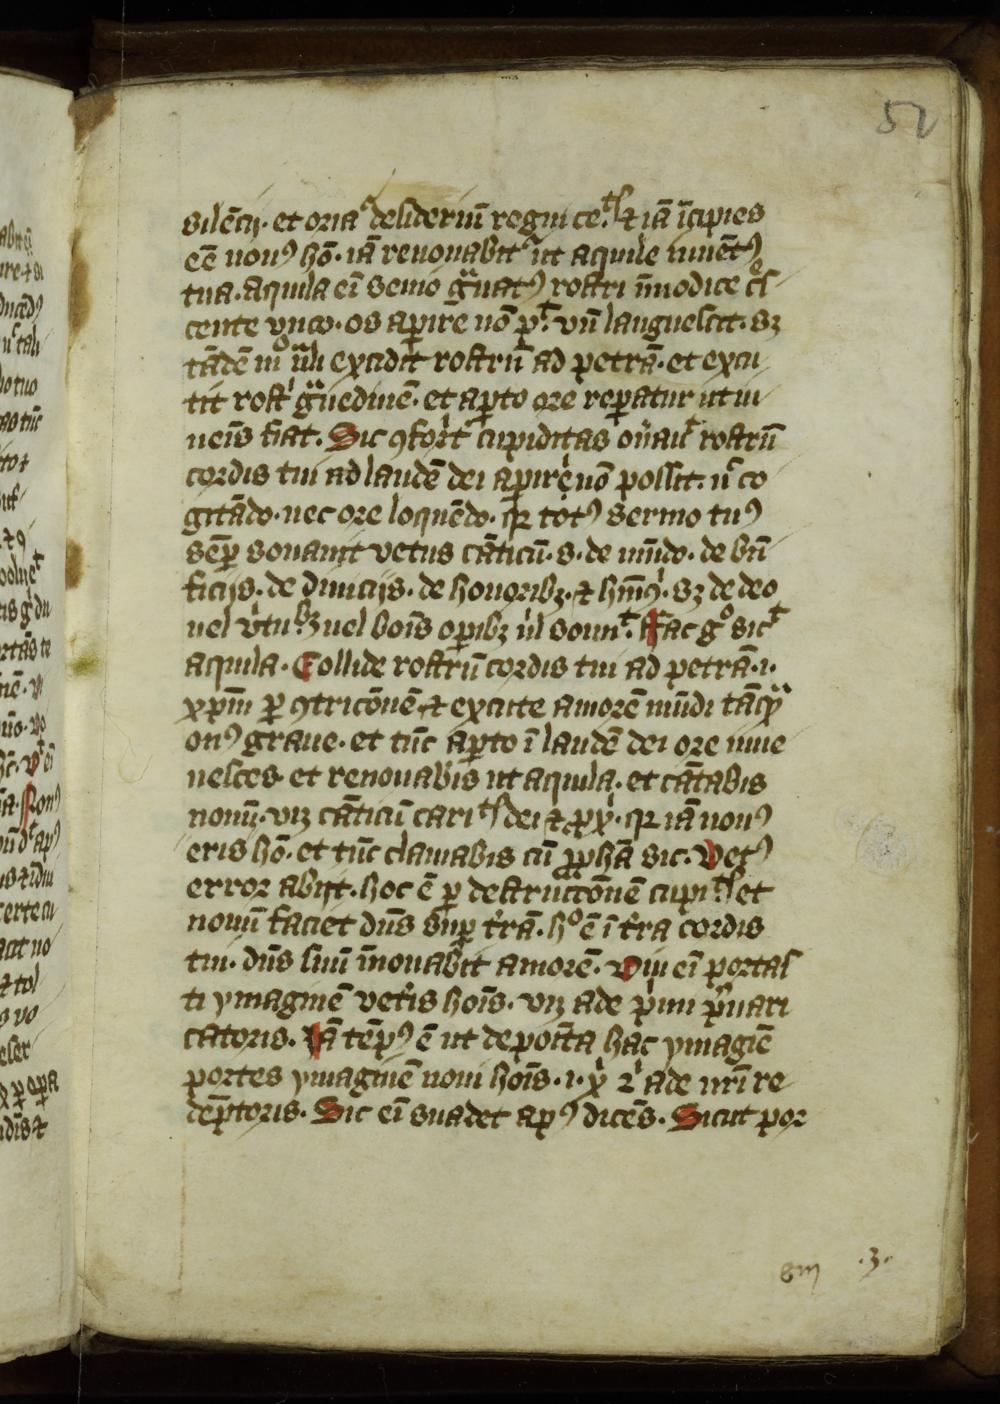 52
silēcij. et oriaͬ desideriū regni ceᵗˡ⁊ iā īcipies
eē nouꝰ hō. iā renouabitͬ ut aquile iuuētꝰ
tua. aquila eī senio gͣuatꝰ rostri īmodice cͤs
cente vnco. os apire nō pᵗ. vn̄ languescit. sꝫ
tādē īuͦ ... excidit rostrū ad petrā. et excu
tit rosͭⁱ gͣuedinē. et apto ore repatur ut iu
uenis fiat. Sic ꝯfortͬ cupiditas on̄auit rostrū
cordis tui ad laudē dei apire nō possit. nͨ co
gitādo. nec ore loquēdo. qꝛ totꝰ sermo tuꝰ
semp sonauit vetus cāticū. s. de mūdo. de bn̄
ficijs. de diuicijs. de honoribꝫ. ⁊ hm̄ōⁱ. sꝫ de deo
uel vͥtuᵇꝫ uel bonis opibꝫ nͥl sonuͭ. Fac gͦ sicͭ
aquila. Collide rostrū cordis tui ad petrā .i.
xpm̄ ꝑ ꝯtricōnē ⁊ excute amorē mūdi tāqͣ
onꝰ graue. et tūc apto ī laudē dei ore iuue
nesces. et renouabis ut aquila. et cātabis
nouū. vꝫ cāticū cariᵗˢ dei ⁊ pxͥ. qꝛ iā nouꝰ
eris hō. et tūc clamabis cū pphā sic. Vetꝰ
error abijt. hoc ē ꝑ destructōnē cupiᵗˢ et
nouū faciet dn̄s sup trā. hͦ ē ī tra cordis
tui. dn̄s suū īnouabit amorē. Qui eī portas
ti ymaginē vetis hois. vꝫ ade pͥmi pͤuari
catoris. Iā tēpꝰ ē ut deposita hac ymagīe
portes ymaginē noui hois .i. xͥ 2ⁱ ade nr̄i re
dēptoris. Sic eī suadet apꝰ dicēs. Sicut por
.3.